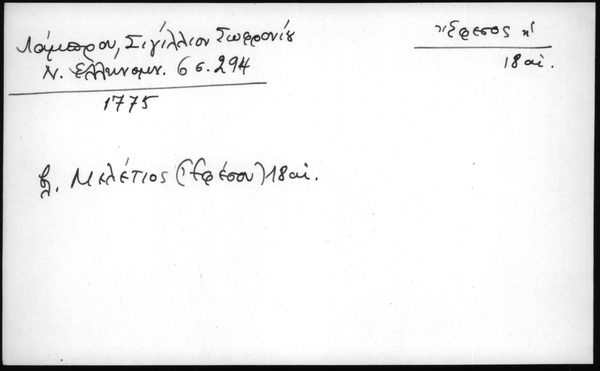 Λάμπρου, Σιγίλλιον Σωφρονίου
Ν. Ελληνομν. 6 σ. 294
1775
Ἔφεσος κ'
18 αἰ.
βλ. Μελέτιος (Ἐφέσου) 18 αἰ.